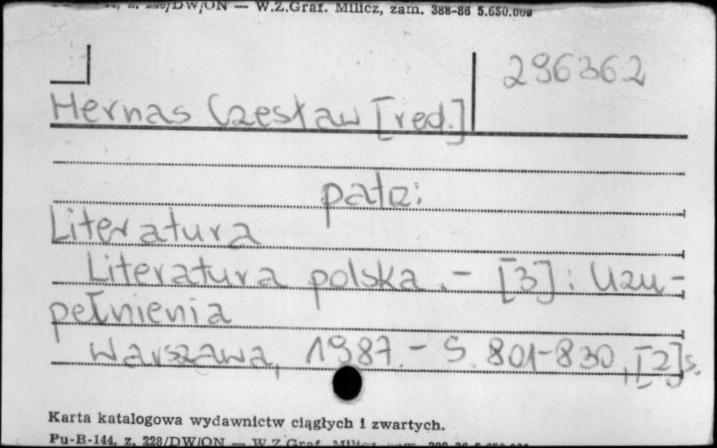 z. 228/DW/ON — W.Z.Graf. Milicz, zam. 388-86 5.650.000
296362
Hernas Czesław [red.]
patrz:
Literatura
Literatura polska. - [3] : Uzu-
pełnienia
Warszawa, 1987. - S. 801-830, [2] s.
Karta katalogowa wydawnictw ciągłych i zwartych.
Pu-B-144, z. 228/DW/ON — W.Z.Graf. Milicz